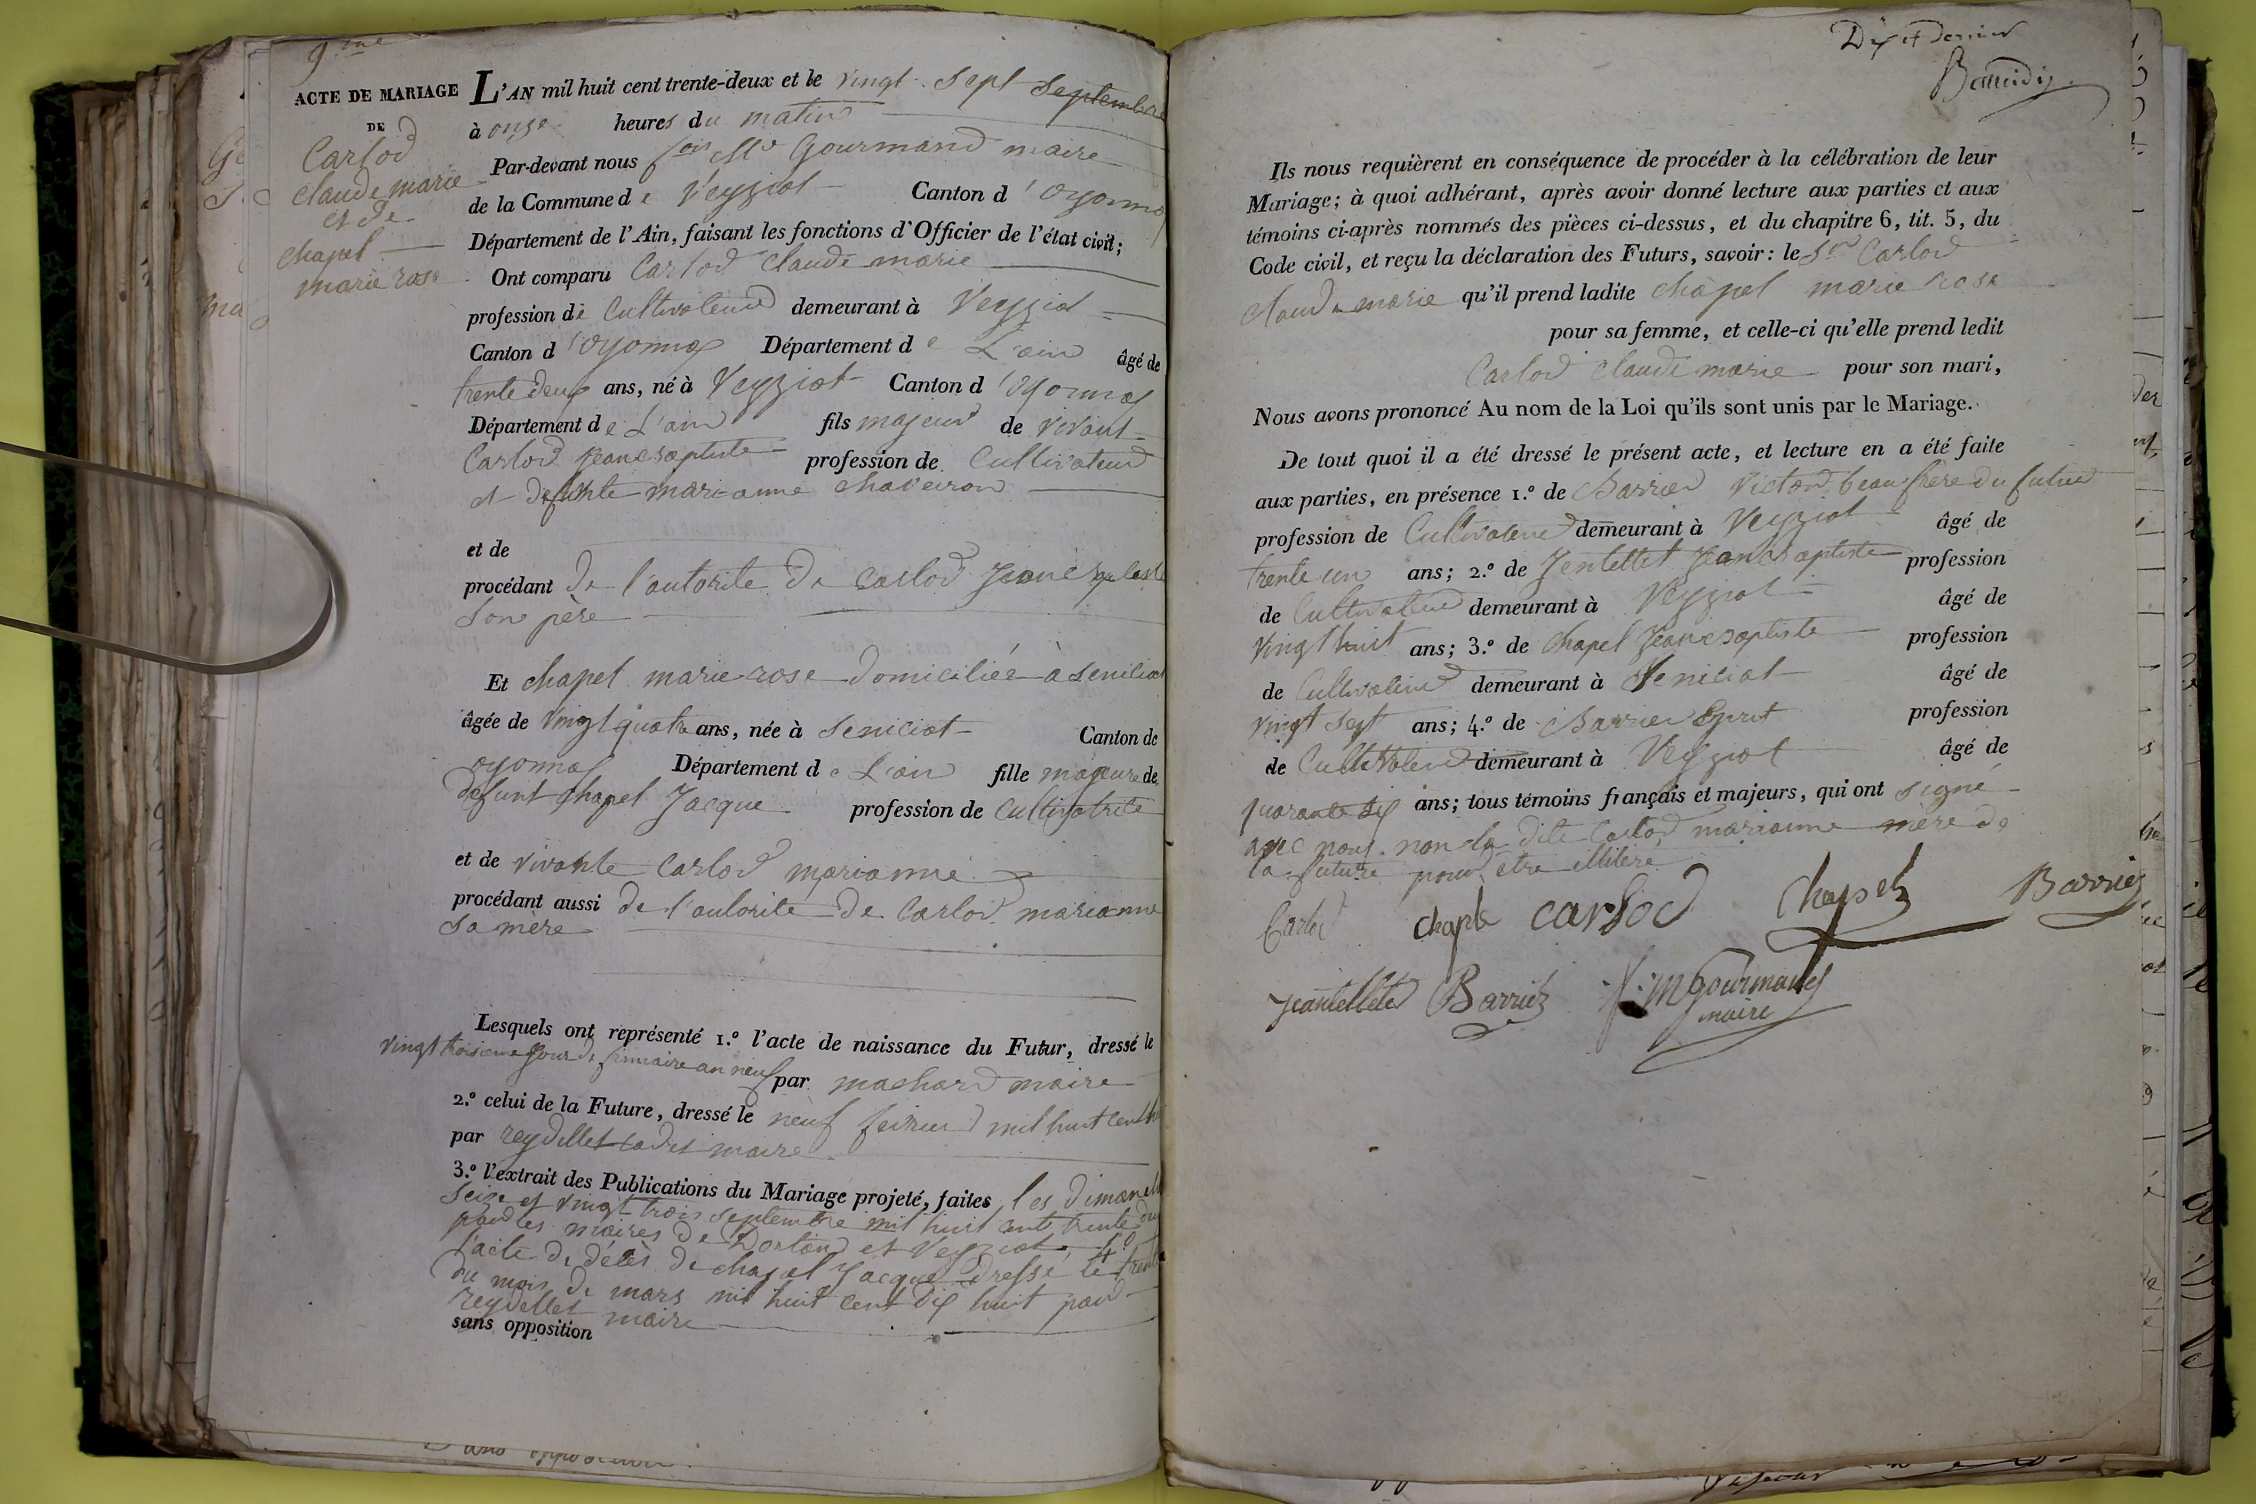 9me
ACTE DE MARIAGE
DE
Carlod
Claude marie
et de
chapel
marie rose
L'AN mil huit cent trente-deux et le vingt sept septembre
à onze heures du matin
Par-devant nous fois Mie Gourmand maire
de la Commune de Veyziat Canton d'Oyonnax
Département de l'Ain, faisant les fonctions d'Officier de l'état civil;
Ont comparu Carlod Claude marie
profession de Cultivateur demeurant à Veyziat
Canton d'oyonnax Département de L'ain âgé de
trente deux ans, né à Veyziat Canton d'oyonnax
Département de L'ain fils majeur de vivant
Carlod Jean Baptiste profession de Cultivateur
et defunte marianne
et de
procédant de l'autorité de Carlod Jean Baptiste
son père
Et chapel marie rose domiciliée à seniciat
âgée de vingt quatre ans, née à seniciat Canton de
oyonnax Département de L'ain fille majeure de
defunt chapel Jacque profession de Cultivatrice
et de vivante Carlod marianne
procédant aussi de l'autorité de Carlod marianne
sa mère
Lesquels ont représenté 1.º l'acte de naissance du Futur, dressé le
vingt troisieme jour de frimaire an neuf par machard maire
2.º celui de la Future, dressé le neuf fevrier mil huit cent
par reydellet maire
3.º l'extrait des Publications du Mariage projeté, faites les dimanche
seize et vingt trois septembre mil huit cent trente deux
par les maires de Dortan et Veyziat 4º
l'acte de décès de chapel Jacque dressé le trente
du mois de mars mil huit cent dix huit par
reydellet maire
sans opposition
Dix et dernier
Ils nous requièrent en conséquence de procéder à la célébration de leur
Mariage; à quoi adhérant, après avoir donné lecture aux parties et aux
témoins ci-après nommés des pièces ci-dessus, et du chapitre 6, tit. 5, du
Code civil, et reçu la déclaration des Futurs, savoir: le Sr Carlod
claude marie qu'il prend ladite chapel marie rose
pour sa femme, et celle-ci qu'elle prend ledit
Carlod claude marie pour son mari,
Nous avons prononcé Au nom de la Loi qu'ils sont unis par le Mariage.
De tout quoi il a été dressé le présent acte, et lecture en a été faite
aux parties, en présence 1.º de Barrier Victor beau frère du futur
profession de Cultivateur demeurant à Veyziat âgé de
trente un ans; 2.º de Jentellet Jean Baptiste profession
de Cultivateur demeurant à Veyziat âgé de
vingt huit ans; 3.º de chapel Jean Baptiste profession
de Cultivateur demeurant à Seniciat âgé de
vingt sept ans; 4.º de Barrier Esprit profession
de Cultivateur demeurant à Veyziat âgé de
quarante six ans; tous témoins français et majeurs, qui ont signé
avec nous non la dite Carlod marianne mère de
la future pour être illiteré
Carlod chaple carlod Chapel Barrier
Jeantelleted Barrier f. M Gourmand
maire